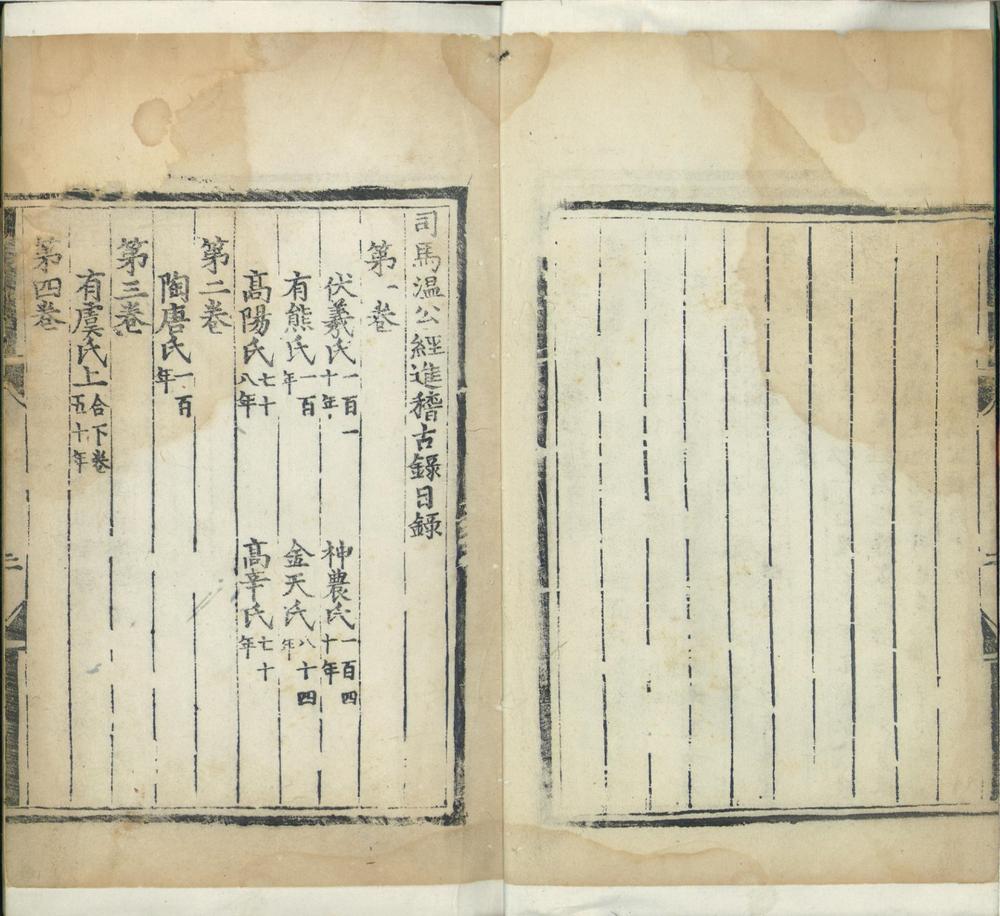 司馬温公經進稽古錄目錄
第一卷
伏羲氏一百一十年 神農氏一百四十年
有熊氏一百年 金天氏八十四年
髙陽氏七十八年 髙辛氏七十年
第二卷
陶唐氏一百年
第三卷
有虞氏上合下卷五十年
第四卷
二